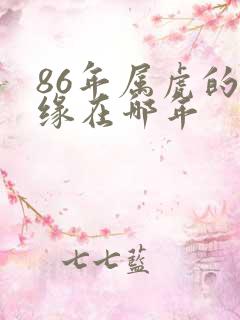 86年属虎的
缘在哪年
七七蓝